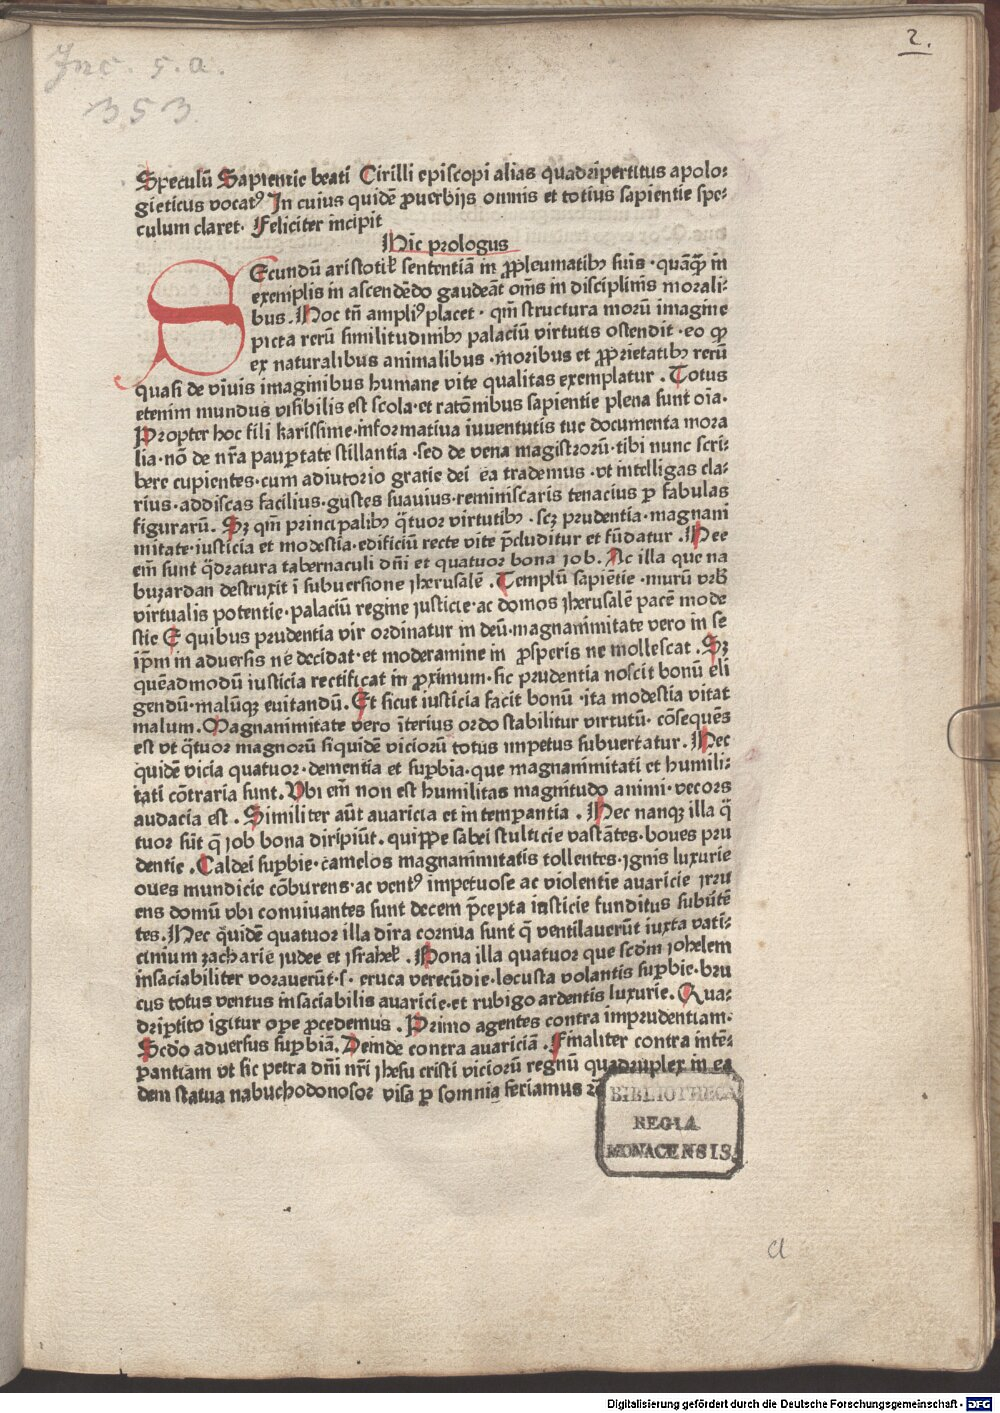 2.
Inc. s. a.
353.
Speculū Sapientie beati Cirilli episcopi alias quadripertitus apolo-
gieticus vocatꝰ In cuius quidē ꝓuerbijs omnis et totius sapientie spe-
culum claret. Feliciter incipit
Hic prologus
SEcundū aristotiƚ sententiā in ꝓpleumatibꝫ suis · quāꝗ̄ in
exemplis in ascendēdo gaudeāt oīns in disciplinis morali-
bus. Hoc tn̄ ampliꝰ placet · qm̄ structura morū imagine
picta rerū similitudinibꝫ palaciū virtutis ostendit · eo ꝙ
ex naturalibus animalibus · moribus et ꝓprietatibꝫ rerū
quasi de viuis imaginibus humane vite qualitas exemplatur . Totus
etenim mundus visibilis est scola · et ratōnibus sapientie plena sunt oīa ·
Propter hoc fili karissime · informatiua iuuentutis tue documenta mora
lia · nō de nr̄a pauꝑtate stillantia · sed de vena magistrorū · tibi nunc scri-
bere cupientes · cum adiutorio gratie dei ea trademus · vt intelligas cla-
rius · addiscas facilius · gustes suauius · reminiscaris tenacius ꝑ fabulas
figurarū . Sꝫ qm̄ principalibꝫ q̄tuor virtutibꝫ . scꝫ prudentia · magnani
mitate · iusticia et modestia · edificiū recte vite p̄cluditur et fūdatur . Hee
em̄ sunt q̄dratura tabernaculi dn̄i et quatuor bona job . Ac illa que na
buzardan destruxit ī subuersione jherusalē . Templū sapiētie · murū vrbꝭ
virtualis potentie · palaciū regine justicie · ac domos jherusalē pacē mode
stie E quibus prudentia vir ordinatur in deū · magnanimitate vero in se
ip̄m in aduersis ne decidat · et moderamine in ꝓsperis ne mollescat . Sꝫ
quēadmodū iusticia rectificat in ꝓximum · sic prudentia noscit bonū eli
gendū · malūqꝫ euitandū . Et sicut iusticia facit bonū · ita modestia vitat
malum . Magnanimitate vero īterius ordo stabilitur virtutū · cōsequēs
est vt q̄tuor magnorū siquidē viciorū totus impetus subuertatur . Hec
quidē vicia quatuor · dementia et suꝑbia · que magnanimitati et humili-
tati cōtraria sunt . Vbi em̄ non est humilitas magnitudo animi · vecors
audacia est . Similiter aūt auaricia et intemꝑantia . Hec nanqꝫ illa q̄
tuor sūt q̄ job bona diripiūt . quippe sabei stulticie vastātes · boues pru
dentie . Caldei suꝑbie · camelos magnanimitatis tollentes · jgnis luxurie
oues mundicie cōburens · ac ventꝰ impetuose ac violentie auaricie jrru
ens domū vbi conuiuantes sunt decem p̄cepta iusticie funditus subūtē
tes . Hec q̄idē quatuor illa dira cornua sunt q̄ ventilauerūt iuxta vati-
cinium zacharie judee et jsraheƚ . Bona illa quatuor que scd̄m johelem
insaciabiliter vorauerūt · s · eruca verecūdie · locusta volantis suꝑbie · bru
cus totus ventus insaciabilis auaricie · et rubigo ardentis luxurie . Qua-
driꝑtito igitur oꝑe ꝓcedemus . Primo agentes contra imprudentiam ·
Scd̄o aduersus suꝑbiā . Deinde contra auariciā . Finaliter contra intē-
ꝑantiam vt sic petra dn̄i nr̄i jhesu cristi viciorū regnū quadruplex in ea
dem statua nabuchodonosor visa ꝑ somnia feriamus
BIBLIOTHECA
REGIA
MONACENSIS
a
Digitalisierung gefördert durch die Deutsche Forschungsgemeinschaft - DFG